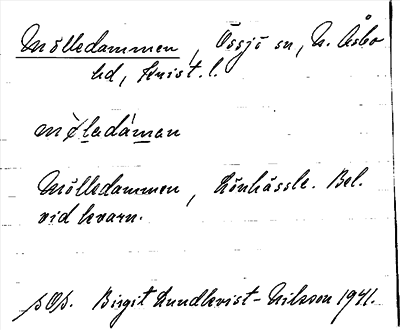 Mölledammen, Össjö sn, N. Åsbo
hd, Krist. l.
Mölledammen, Lönhässle. Bel.
vid kvarn.
Birgit Lundkvist-Nilsson 1941.